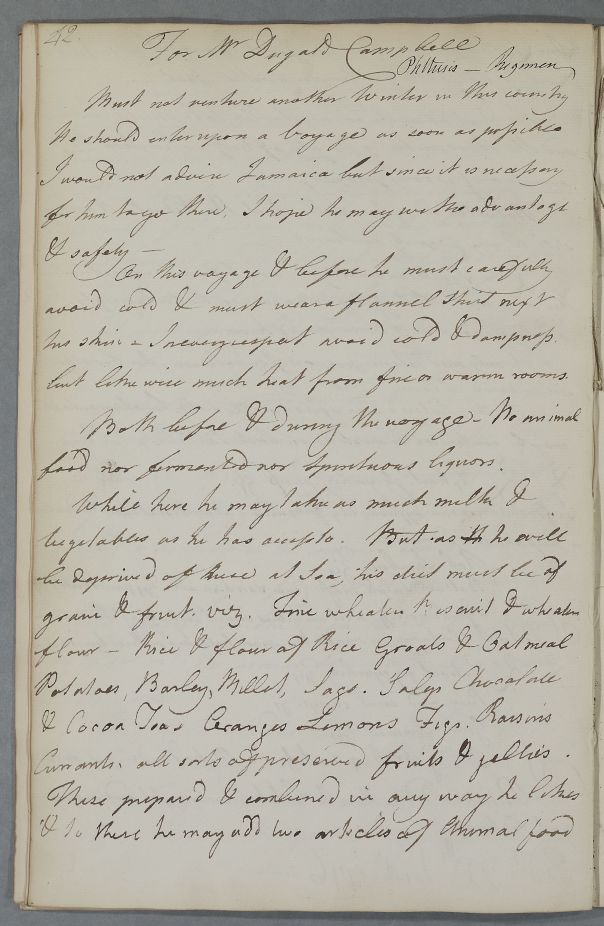 42.
For Mr Dugald Campbell
Phthisis — Regimen
Must not venture another Winter in this country
He should enter upon a voyage as soon as possible
I would not advise Jamaica but since it is necessary
for him to go there, I hope he may with advantage
& safety —
On this voyage & before he must carefully
avoid cold & must wear a flannel Shirt next
his skin – In every respect avoid cold & dampness
but likewise much heat from fire or warm rooms.
Both before & during the voyage – No animal
food nor fermented nor spirituous liquors.
While here he may take as much milk &
Vegetables as he has access to. But as he will
be deprived of these at Sea, his diet must be of
grain & fruit. viz. Fine wheaten Biscuit & wheaten
flour – Rice & flour of Rice Groats & Oatmeal
Potatoes, Barley, Millet, Sago. Salep Chocolate
& Cocoa Teas Oranges Lemons Figs. Raisins
Currants. all sorts of preserved fruits & jellies.
These prepared & combined in any way he likes
& to these he may add two articles of Animal food